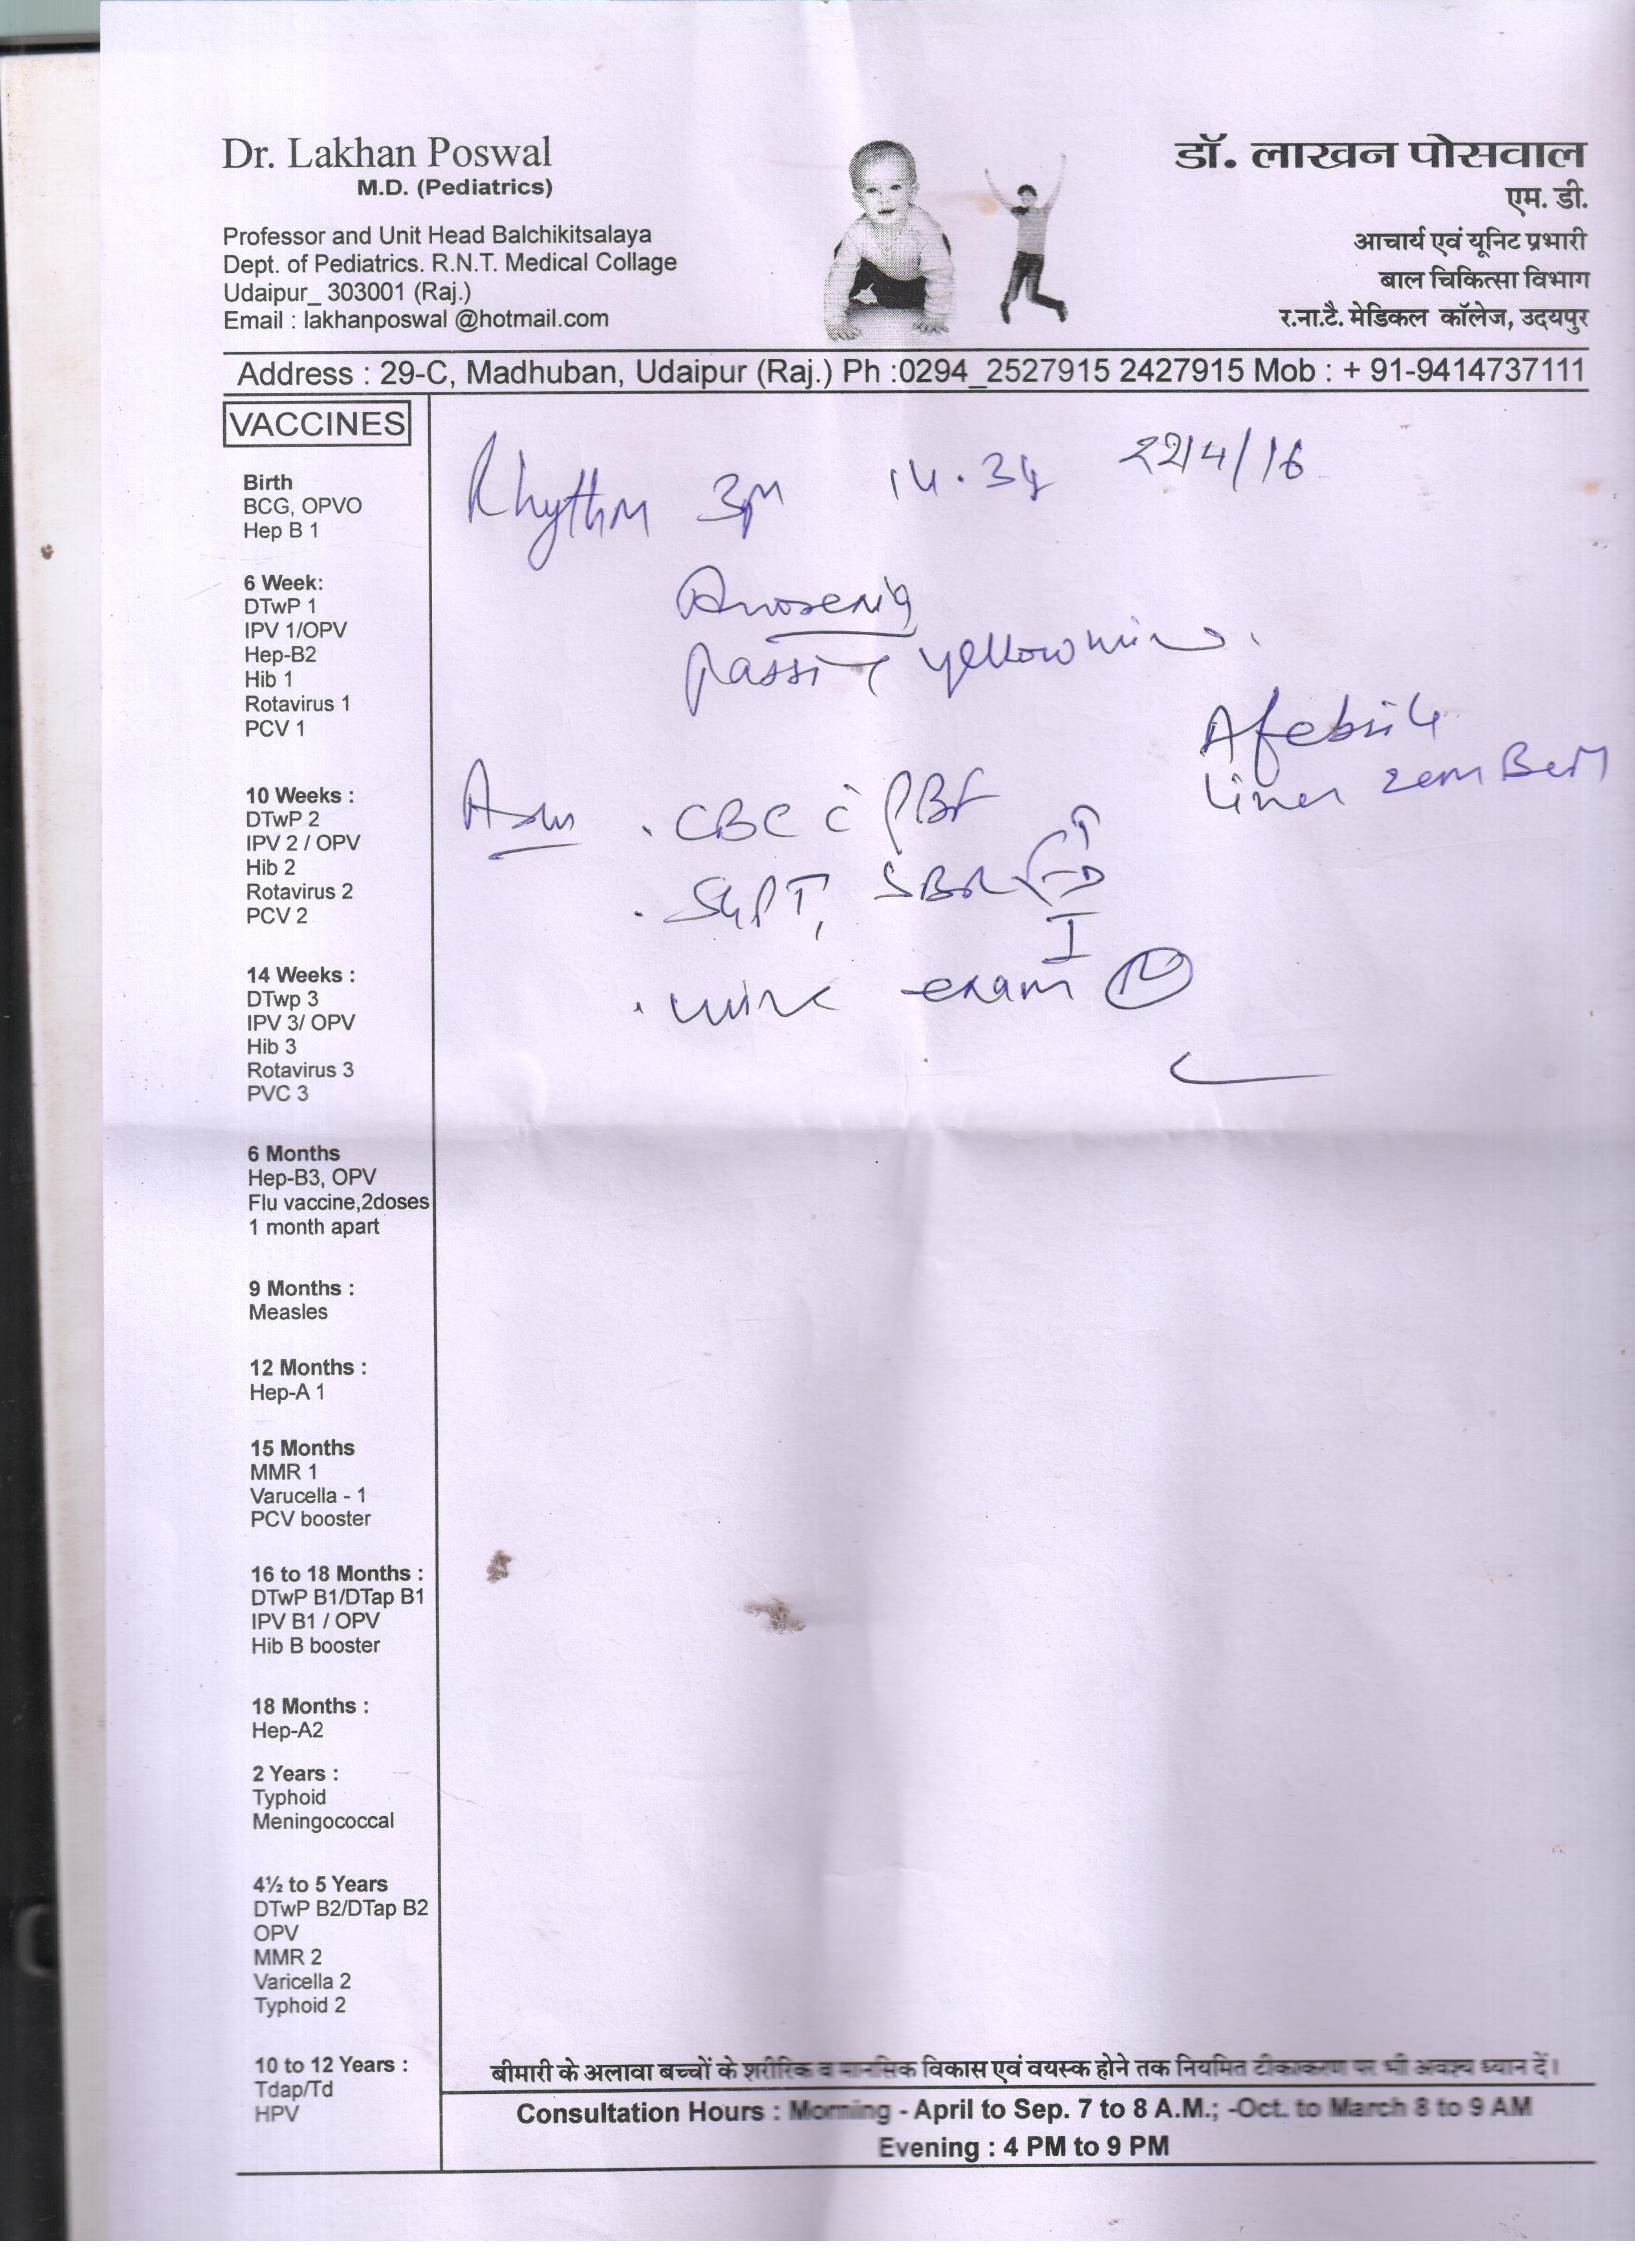 Dr. Lakhan Poswal
M.D. (Pediatrics)
Professor and Unit Head Balchikitsalaya
Dept. of Pediatrics. R.N.T. Medical Collage
Udaipur_ 303001 (Raj.)
Email : lakhanposwal @hotmail.com
डॉ. लाखन पोसवाल
एम. डी.
आचार्य एवं यूनिट प्रभारी
बाल चिकित्सा विभाग
र.ना.टै. मेडिकल कॉलेज, उदयपुर
Address : 29-C, Madhuban, Udaipur (Raj.) Ph :0294_2527915 2427915 Mob : + 91-9414737111
VACCINES
Birth
BCG, OPVO
Hep B 1
6 Week:
DTwP 1
IPV 1/OPV
Hep-B2
Hib 1
Rotavirus 1
PCV 1
10 Weeks :
DTwP 2
IPV 2 / OPV
Hib 2
Rotavirus 2
PCV 2
14 Weeks :
DTwp 3
IPV 3/ OPV
Hib 3
Rotavirus 3
PVC 3
6 Months
Hep-B3, OPV
Flu vaccine,2doses
1 month apart
9 Months :
Measles
12 Months :
Hep-A 1
15 Months
MMR 1
Varucella - 1
PCV booster
16 to 18 Months :
DTwP B1/DTap B1
IPV B1 / OPV
Hib B booster
18 Months :
Hep-A2
2 Years :
Typhoid
Meningococcal
4½ to 5 Years
DTwP B2/DTap B2
OPV
MMR 2
Varicella 2
Typhoid 2
10 to 12 Years :
Tdap/Td
HPV
Rhythm 22/4/16
yellow urine.
Afebrile
Liver
Adv . CBC c̄ PBF
. SGPT, SBR T
D
I
. urine exam
बीमारी के अलावा बच्चों के शरीरिक व मानसिक विकास एवं वयस्क होने तक नियमित टीकाकरण पर भी अवश्य ध्यान दें।
Consultation Hours : Morning - April to Sep. 7 to 8 A.M.; -Oct. to March 8 to 9 AM
Evening : 4 PM to 9 PM